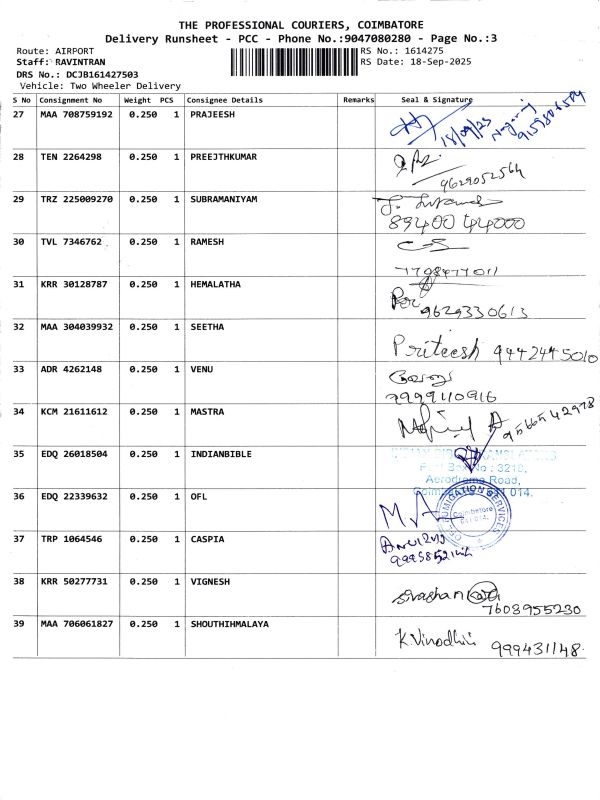 THE PROFESSIONAL COURIERS, COIMBATORE
Delivery Runsheet - PCC - Phone No.:9047080280 - Page No.:3
Route: AIRPORT RS No.: 1614275
Staff: RAVINTRAN RS Date: 18-Sep-2025
DRS No.: DCJB161427503
Vehicle: Two Wheeler Delivery
S No Consignment No Weight PCS Consignee Details Remarks Seal & Signature
27 MAA 708759192 0.250 1 PRAJEESH 18/09/25
28 TEN 2264298 0.250 1 PREEJTHKUMAR
9629052564
29 TRZ 225009270 0.250 1 SUBRAMANIYAM
89400 44000
30 TVL 7346762 0.250 1 RAMESH
31 KRR 30128787 0.250 1 HEMALATHA
9629330613
32 MAA 304039932 0.250 1 SEETHA
Priteesh 9442445010
33 ADR 4262148 0.250 1 VENU
9999110916
34 KCM 21611612 0.250 1 MASTRA
9566542978
35 EDQ 26018504 0.250 1 INDIANBIBLE
Post Box No : 3210,
Aerodrome Road,
Coimbatore 641 014.
36 EDQ 22339632 0.250 1 OFL
FUMIGATION SERVICES
Coimbatore
641 014.
37 TRP 1064546 0.250 1 CASPIA
38 KRR 50277731 0.250 1 VIGNESH
7608955230
39 MAA 706061827 0.250 1 SHOUTHIHMALAYA
K.Vinodhini 999431148.